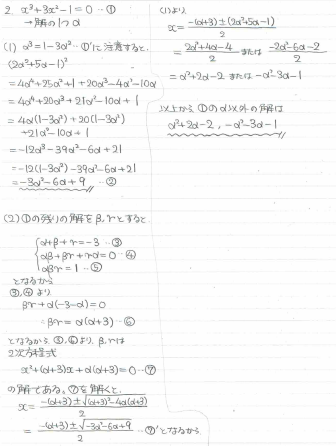 2. x³+3x²−1=0 …①
→解の1つα
(1) α³=1−3α² …①'に注意すると、
(2α²+5α−1)²
=4α⁴+25α²+1+20α³−4α²−10α
=4α⁴+20α³+21α²−10α+1
=4α(1−3α²)+20(1−3α²)
+21α²−10α+1
=−12α³−39α²−6α+21
=−12(1−3α²)−39α²−6α+21
=−3α²−6α+9 …②
(2) ①の残りの解をβ,γとすると
α+β+γ=−3 …③
αβ+βγ+γα=0 …④
αβγ=1 …⑤
となるから
③,④より
βγ+α(−3−α)=0
∴βγ=α(α+3) …⑥
となるから、③,⑥より、β,γは
2次方程式
x²+(α+3)x+α(α+3)=0 …⑦
の解である。⑦を解くと、
x=−(α+3)±√(α+3)²−4α(α+3)/2
=−(α+3)±√−3α²−6α+9/2 …⑦'となるから
(1)より
x=−(α+3)±(2α²+5α−1)/2
=2α²+4α−4/2 または −2α²−6α−2/2
=α²+2α−2 または −α²−3α−1
以上から ①のα以外の解は
α²+2α−2, −α²−3α−1